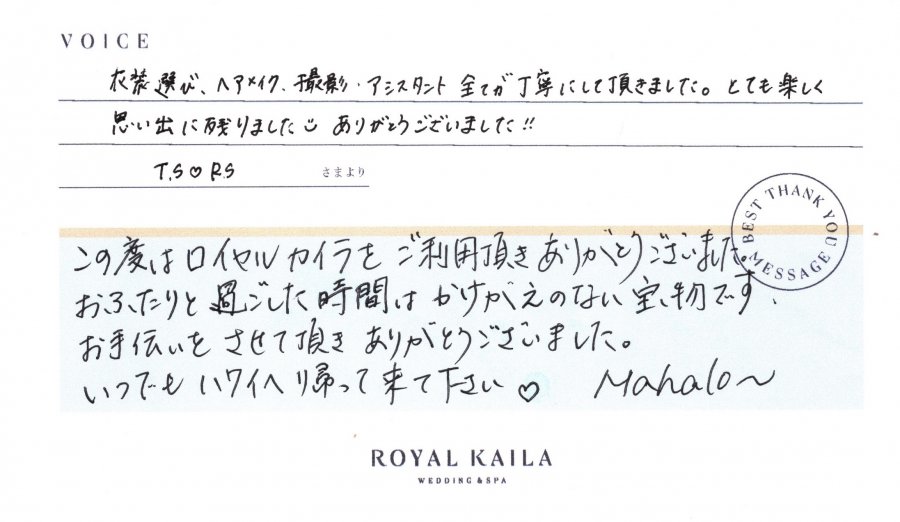 VOICE
衣装選び、ヘアメイク、撮影・アシスタント 全てが丁寧にして頂きました。とても楽しく
思い出に残りました ありがとうございました!!
T.S♡R.S さまより
BEST THANK YOU MESSAGE
この度はロイヤルカイラをご利用頂きありがとうございました。
おふたりと過ごした時間はかけがえのない宝物です、
お手伝いをさせて頂きありがとうございました。
いつでもハワイへり帰って来て下さい♡ Mahalo~
ROYAL KAILA
WEDDING & SPA